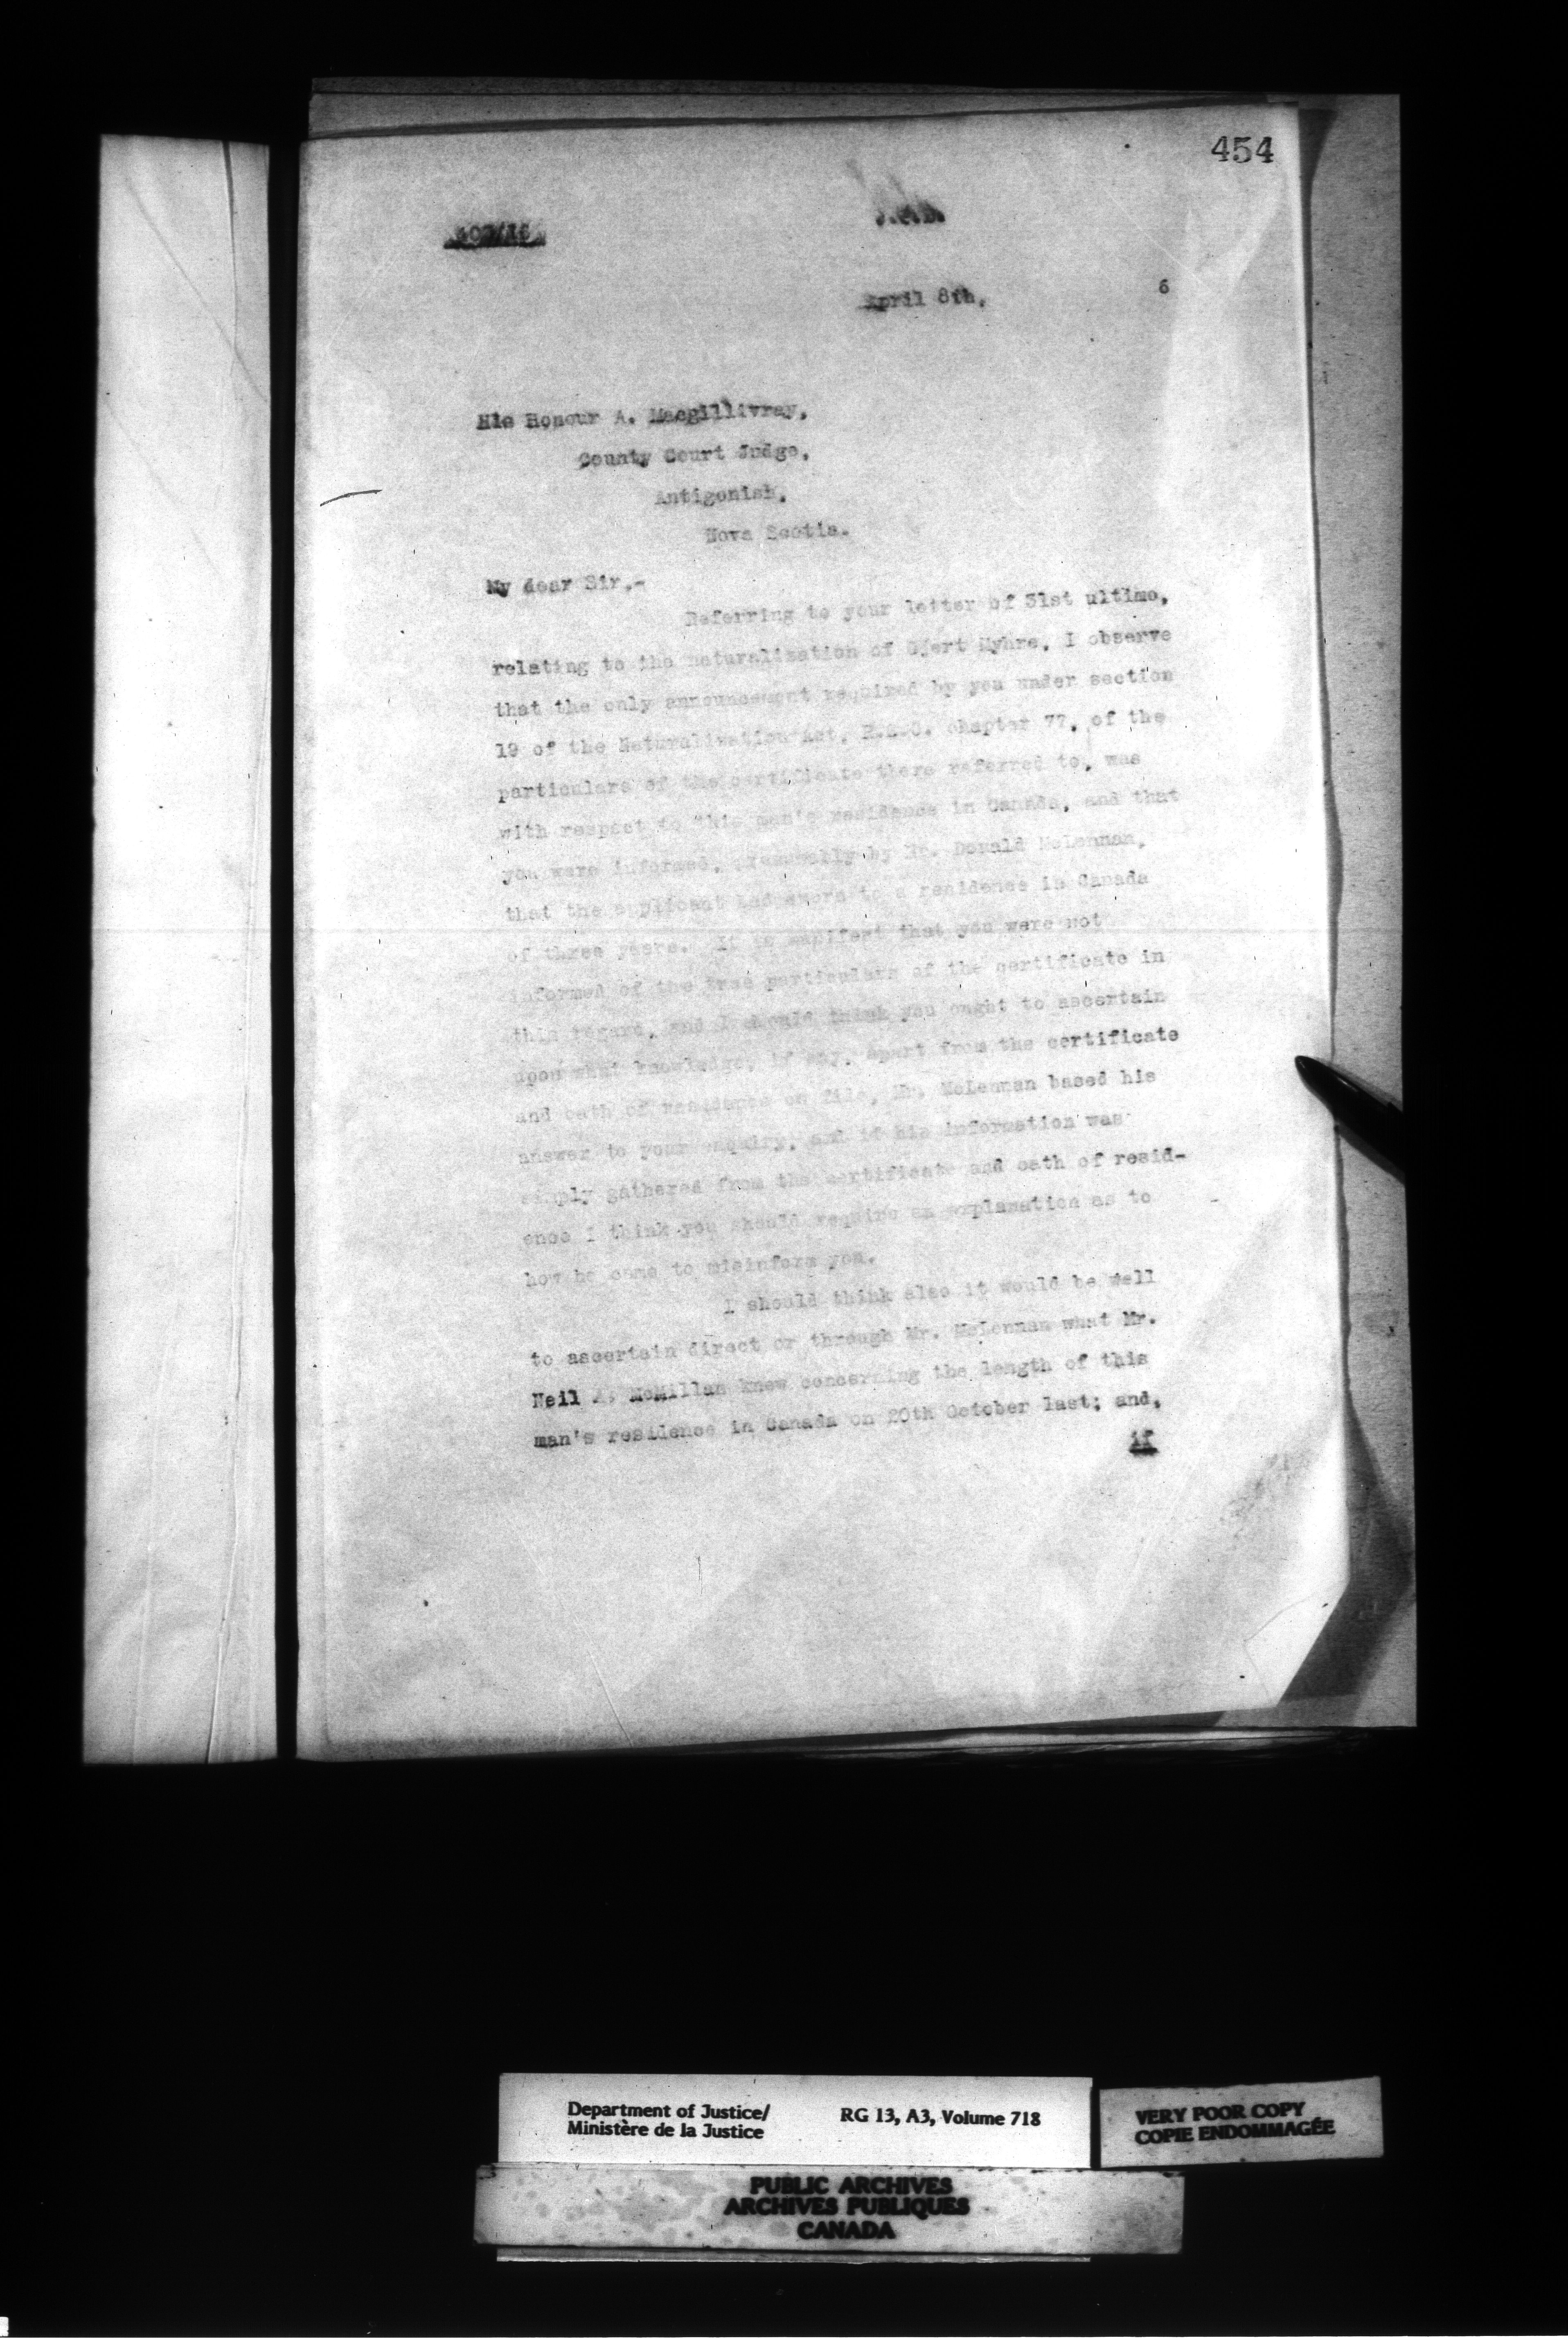 454
April 8th,
6
His Honour A. Macgillivray,
County Court Judge,
Antigonish,
Nova Scotia.
My dear Sir,-
Referring to your letter of 31st ultimo,
relating to the naturalization of Myhre, I observe
that the only announcement required by you under section
19 of the Naturalization Act, R.S.C. chapter 77, of the
particulars of the certificate there referred to, was
with respect to this man's residence in Canada, and that
you were informed, presumably by Mr. Donald McLennan,
that the applicant had sworn to a residence in Canada
of three years. It is manifest that you were not
informed of the true particulars of the certificate in
this regard, and I should think you ought to ascertain
upon what knowledge, if any, apart from the certificate
and oath of residence on file, Mr. McLennan based his
answer to your enquiry, and if his information was
simply gathered from the certificate and oath of resid-
ence I think you should require an explanation as to
how he came to misinform you.
I should think also it would be well
to ascertain direct or through Mr. McLennan what Mr.
Neil McMillan knew concerning the length of this
man's residence in Canada on 20th October last; and,
if
Department of Justice/
Ministère de la Justice
RG 13, A3, Volume 718
VERY POOR COPY
COPIE ENDOMMAGÉE
PUBLIC ARCHIVES
ARCHIVES PUBLIQUES
CANADA